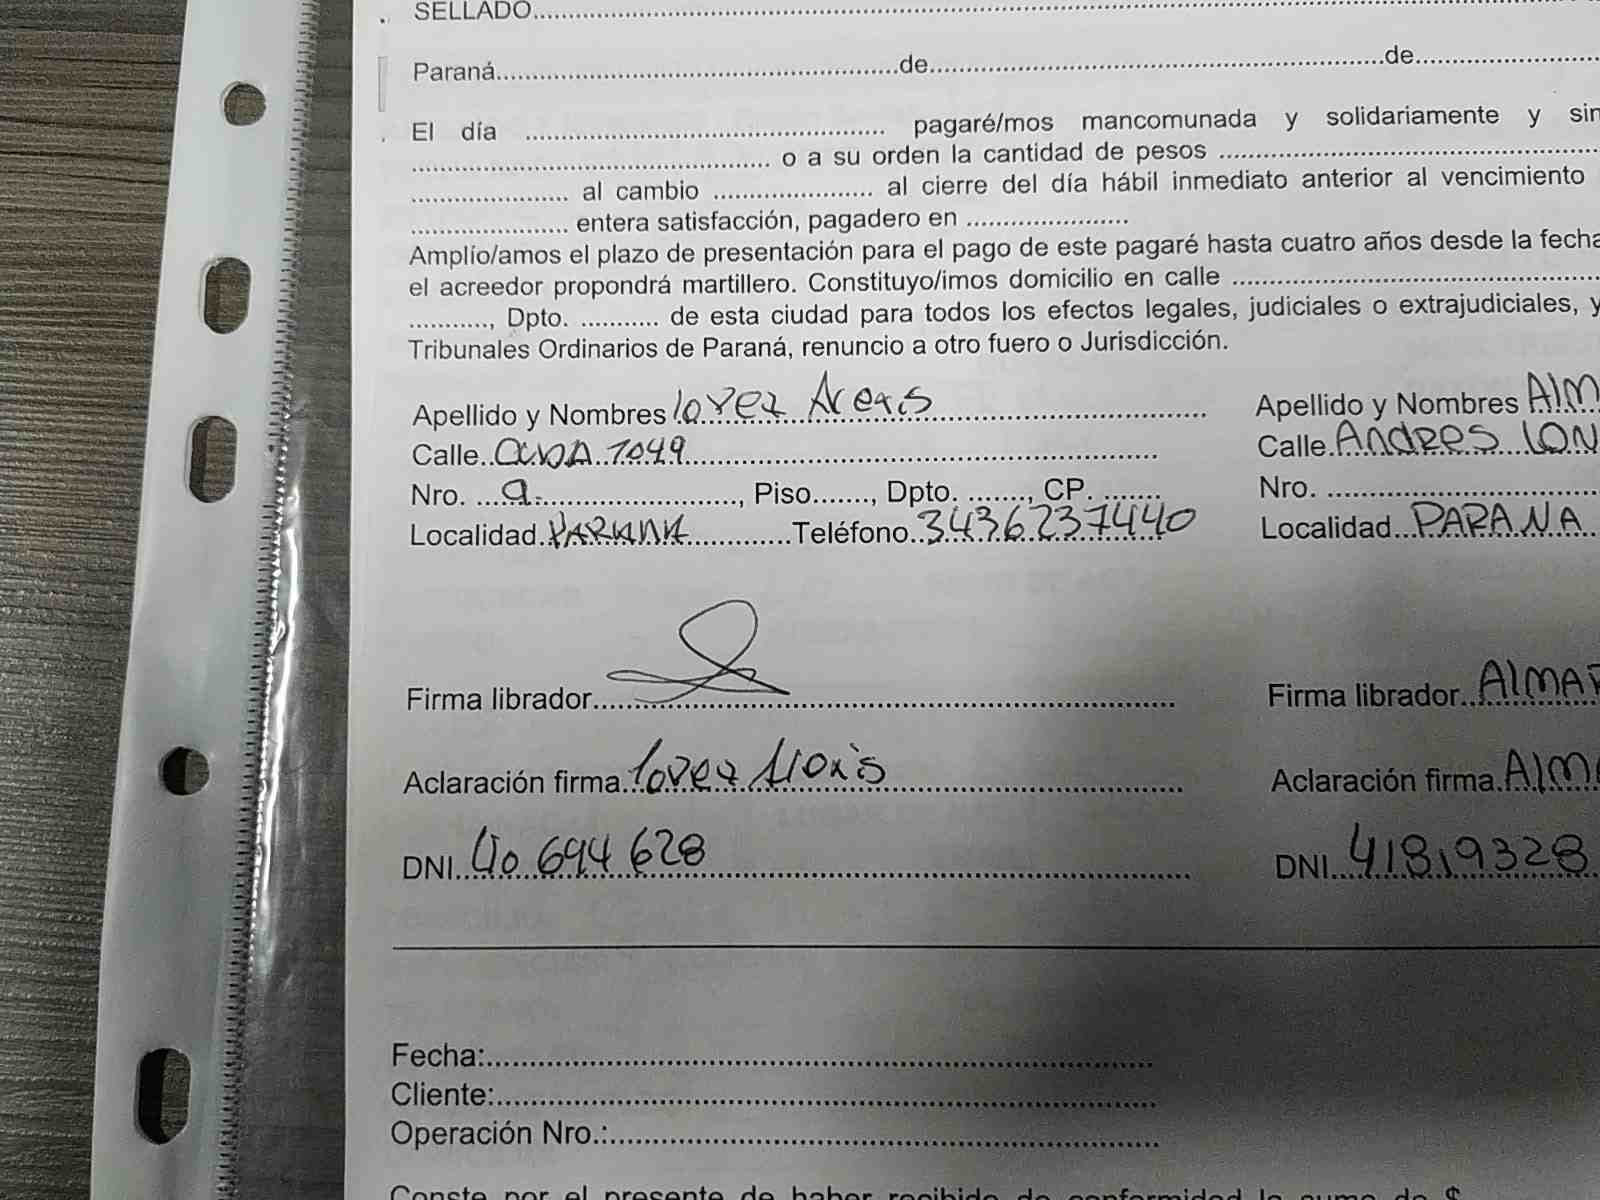 SELLADO
Paraná de de
El día pagaré/mos mancomunada y solidariamente y sin
o a su orden la cantidad de pesos
al cambio al cierre del día hábil inmediato anterior al vencimiento
entera satisfacción, pagadero en
Amplío/amos el plazo de presentación para el pago de este pagaré hasta cuatro años desde la fecha
el acreedor propondrá martillero. Constituyo/imos domicilio en calle
, Dpto. de esta ciudad para todos los efectos legales, judiciales o extrajudiciales, y
Tribunales Ordinarios de Paraná, renuncio a otro fuero o Jurisdicción.
Apellido y Nombres lopez Apellido y Nombres AlM
Calle 1049 Calle Andres LON
Nro. , Piso , Dpto. , CP. Nro.
Localidad PARANA Teléfono 3436237440 Localidad PARANA
Firma librador Firma librador AlMA
Aclaración firma lopez Alexis Aclaración firma AlM
DNI 40 694 628 DNI 41819328
Fecha:
Cliente:
Operación Nro.:
Conste por el presente de haber recibido de conformidad la suma de $